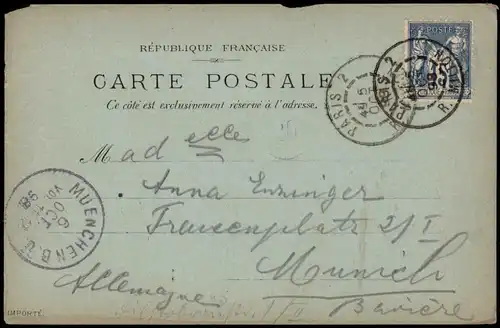 RÉPUBLIQUE FRANÇAISE
CARTE POSTALE
Ce côté est exclusivement réservé à l'adresse.
POSTE
PARIS 2
PARIS 2
Mad elle
Anna Enzinger
Frauenplatz 2/I
Munich
Bavière
Allemagne
MUENCHEN
OCT
98
IMPORTÉ